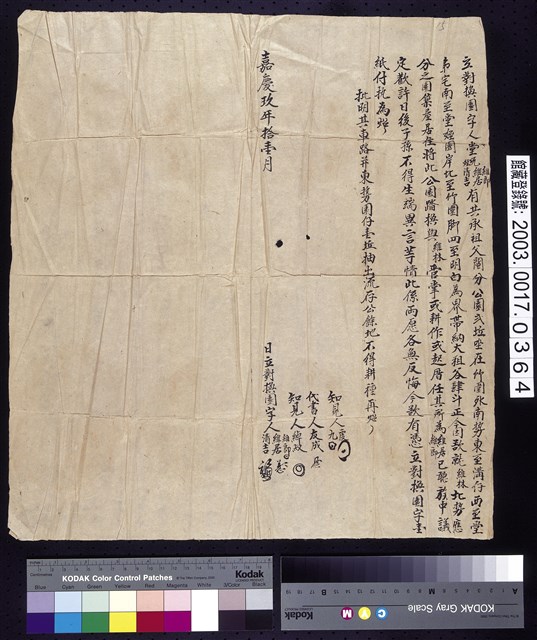 立對換園字人堂兄維郎維居維清吉有共承祖父鬮分公園貳坵坐在竹圍外南勢東至溝仔西至堂
弟宅南至堂姪園岸北至竹圍脚四至明白為界帶納大租谷肆斗正今園欲就維林北勢應
分之園築屋居住將此公園踏換與維林掌管或耕作或起居任其所為維居維郎已聽教申議
定歡許日後子孫不得生端異言等情此係兩愿各無反悔今欲有憑立對換園字壹
紙付執為炤
批明其車路并東勢園仔壹坵抽出流存公餘地不得耕種再炤
嘉慶玖年拾壹月
日立對換園字人維郎維居清吉
知見人
代書人友成
知見人
館藏登錄號: 2003.0017.0364
KODAK Color Control Patches
Kodak
Blue Cyan Green Yellow Red Magenta White 3/Color Black
KODAK Gray Scale
C Y M
Kodak
A M B